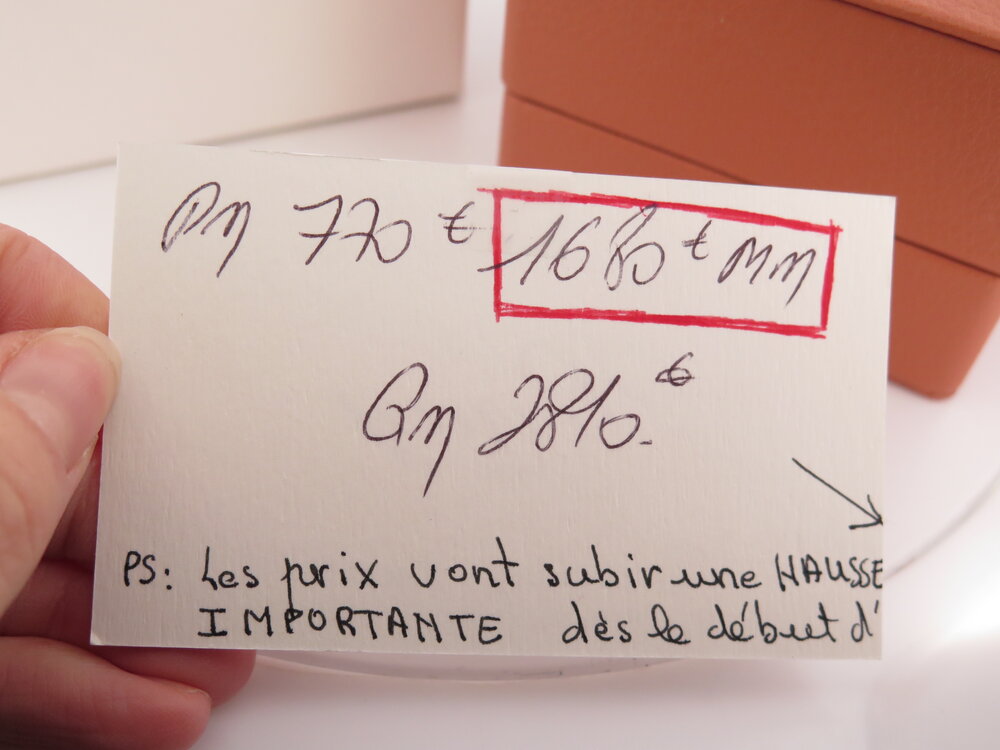 PM 770 € 1680 € MM
GM 2810.€
PS: Les prix vont subir une HAUSSE
IMPORTANTE dès le début d'